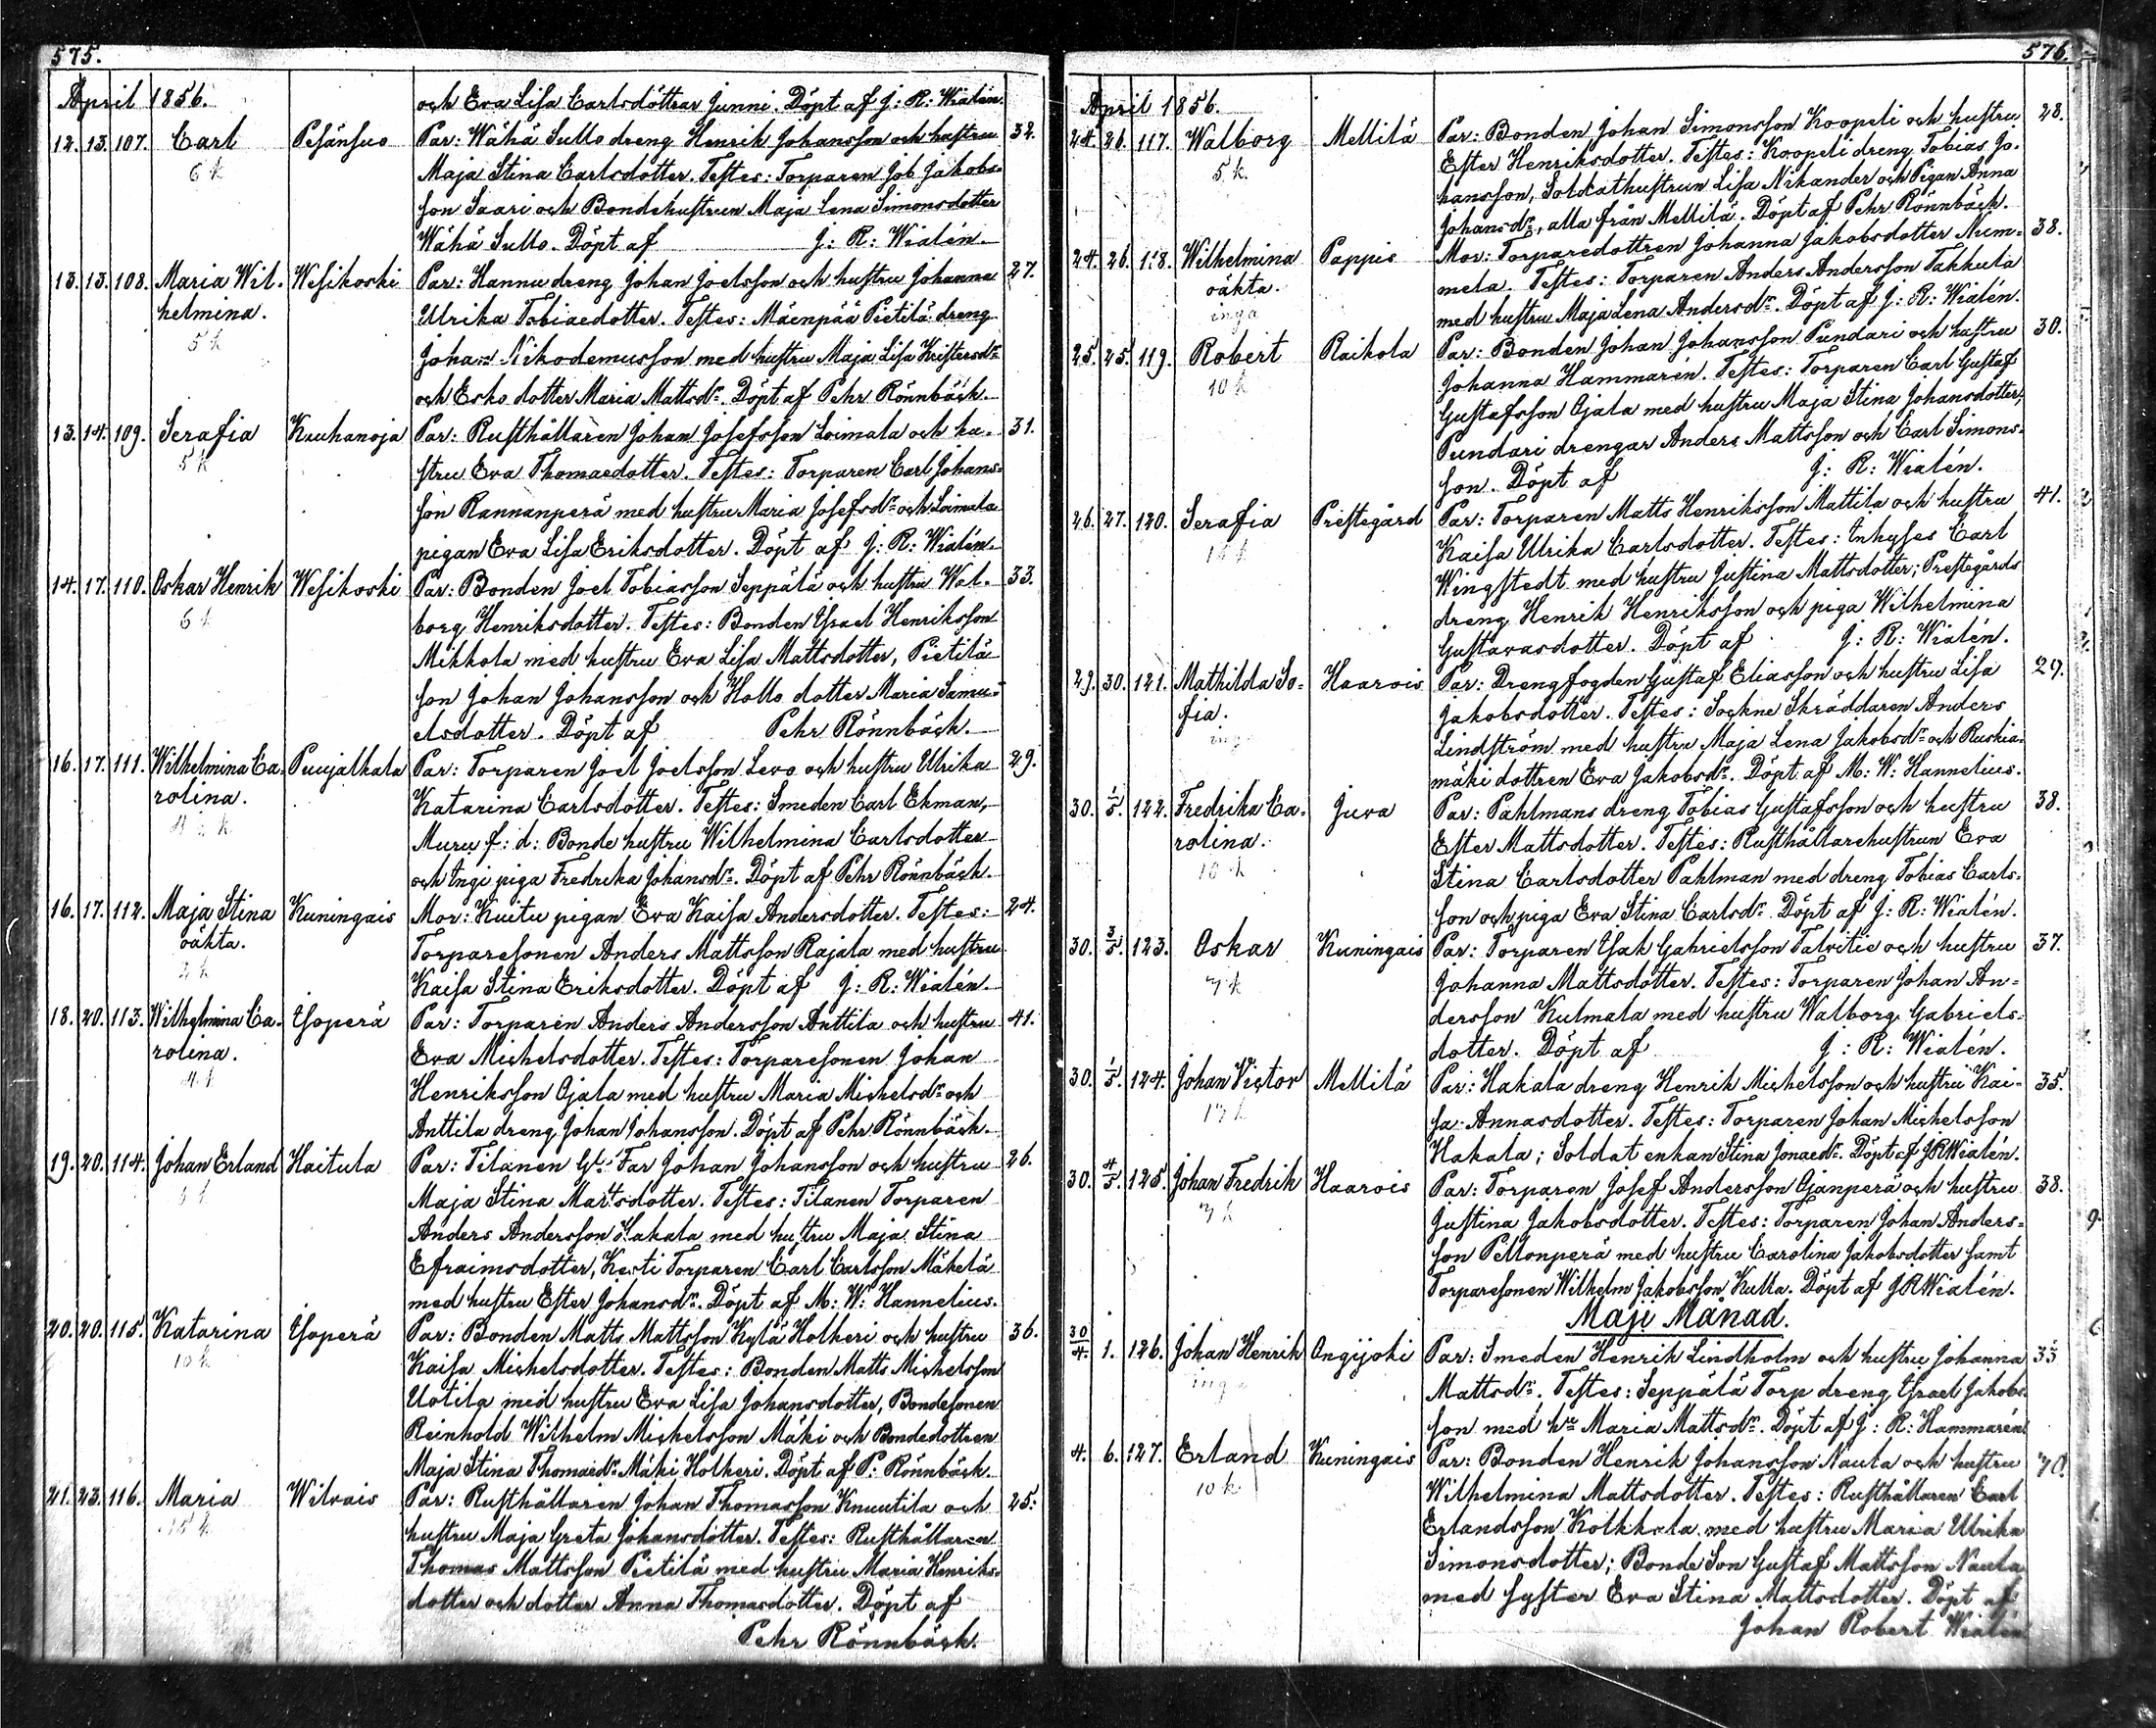 575.
April 1856. och Eva Lisa Carlsdöttrar Junni. Döpt af J: R: Wialén.
12. 13. 107. Carl Pesänsuo Par: Wähä Sullo dreng Henrik Johansson och hustru 32.
6 k Maja Stina Carlsdotter. Testes: Torparen Job Jakobs-
son Saari och Bondehustrun Maja Lena Simonsdotter
Wähä Sullo. Döpt af J: R: Wialén.
13. 13. 108. Maria Wil- Wesikoski Par: Hannu dreng Johan Joelsson och hustru Johanna 27.
helmina. Ulrika Tobiaedotter. Testes: Mäenpää Pietilä dreng
5 k Johan Nikodemusson med hustru Maja Lisa Kristersdr
och Esko dotter Maria Mattsdr. Döpt af Pehr Rönnbäck.
13. 14. 109. Serafia Kauhanoja Par: Rusthållaren Johan Josefsson Loimala och hu- 31.
5 k stru Eva Thomaedotter. Testes: Torparen Carl Johans-
son Rannanperä med hustru Maria Josefsdr och Loimala
pigan Eva Lisa Eriksdotter. Döpt af J: R: Wialén.
14. 17. 110. Oskar Henrik Wesikoski Par: Bonden Joel Tobiasson Seppälä och hustru Wal- 33.
6 k borg Henriksdotter. Testes: Bonden Israel Henriksson
Mikkola med hustru Eva Lisa Mattsdotter, Pietilä
son Johan Johansson och Hollo dotter Maria Samu-
elsdotter. Döpt af Pehr Rönnbäck.
16. 17. 111. Wilhelmina Ca- Puujalkala Par: Torparen Joel Joelsson Levo och hustru Ulrika 29.
rolina. Katarina Carlsdotter. Testes: Smeden Carl Ekman,
Muru f: d: Bonde hustru Wilhelmina Carlsdotter
och Ingi piga Fredrika Johansdr. Döpt af Pehr Rönnbäck.
16. 17. 112. Maja Stina Kuningais Mor: Kuitu pigan Eva Kaisa Andersdotter. Testes: 24.
oäkta. Torparesonen Anders Mattsson Rajala med hustru
2 k Kaisa Stina Eriksdotter. Döpt af J: R: Wialén.
18. 20. 113. Wilhelmina Ca- Isoperä Par: Torparen Anders Andersson Anttila och hustru 41.
rolina. Eva Michelsdotter. Testes: Torparesonen Johan
4 k Henriksson Ojala med hustru Maria Michelsdr och
Anttila dreng Johan Johansson. Döpt af Pehr Rönnbäck.
19. 20. 114. Johan Erland Haitula Par: Tilanen Far Johan Johansson och hustru 26.
Maja Stina Mattsdotter. Testes: Tilanen Torparen
Anders Andersson Hakala med hustru Maja Stina
Efraimsdotter, Kesti Torparen Carl Carlsson Mäkelä
med hustru Ester Johansdr. Döpt af M: W: Hannelius.
20. 20. 115. Katarina Isoperä Par: Bonden Matts Mattsson Kylä Holkeri och hustru 36.
10 k Kaisa Michelsdotter. Testes: Bonden Matts Michelsson
Uotila med hustru Eva Lisa Johansdotter, Bondesonen
Reinhold Wilhelm Michelsson Mäki och Bondedottren
Maja Stina Thomaedr Mäki Holkeri. Döpt af P: Rönnbäck.
21. 23. 116. Maria Wilvais Par: Rusthållaren Johan Thomasson Knuutila och 25.
15 k hustru Maja Greta Johansdotter. Testes: Rusthållaren
Thomas Mattsson Pietilä med hustru Maria Henriks-
dotter och dotter Anna Thomasdotter. Döpt af
Pehr Rönnbäck.
576.
April 1856.
24. 26. 117. Walborg Mellilä Par: Bonden Johan Simonsson Koopeli och hustru 28.
5 k. Ester Henriksdotter. Testes: Koopeli dreng Tobias Jo-
hansson, Soldathustrun Lisa Nikander och Pigan Anna
Johansdr, alla från Mellilä. Döpt af Pehr Rönnbäck.
24. 26. 118. Wilhelmina Pappis Mor: Torparedottren Johanna Jakobsdotter Num- 38.
oäkta. mela. Testes: Torparen Anders Andersson Takkula
inga med hustru Maja Lena Andersdr. Döpt af J: R: Wialén.
25. 25. 119. Robert Raikola Par: Bonden Johan Johansson Pundari och hustru 30.
10 k Johanna Hammarén. Testes: Torparen Carl Gustaf
Gustafsson Ojala med hustru Maja Stina Johansdotter,
Pundari drengar Anders Mattsson och Carl Simons-
son. Döpt af J: R: Wialén.
26. 27. 120. Serafia Prestegård Par: Torparen Matts Henriksson Mattila och hustru 41.
Kaisa Ulrika Carlsdotter. Testes: Inhyses Carl
Wingstedt med hustru Justina Mattsdotter; Prestegårds
dreng Henrik Henriksson och piga Wilhelmina
Gustavasdotter. Döpt af J: R: Wialén.
29. 30. 121. Mathilda So- Haarois Par: Drengfogden Gustaf Eliasson och hustru Lisa 29.
fia. Jakobsdotter. Testes: Sockne Skräddaren Anders
inga Lindström med hustru Maja Lena Jakobsdr och Ruskia-
mäki dottren Eva Jakobsdr. Döpt af M: W: Hannelius.
30. 1/5. 122. Fredrika Ca- Juva Par: Pahlmans dreng Tobias Gustafsson och hustru 38.
rolina. Ester Mattsdotter. Testes: Rusthållarehustrun Eva
10 k Stina Carlsdotter Pahlman med dreng Tobias Carls-
son och piga Eva Stina Carlsdr. Döpt af J: R: Wialén.
30. 3/5. 123. Oskar Kuningais Par: Torparen Isak Gabrielsson Talvitie och hustru 37.
7 k Johanna Mattsdotter. Testes: Torparen Johan An-
dersson Kulmala med hustru Walborg Gabriels-
dotter. Döpt af J: R: Wialén.
30. 1/5. 124. Johan Victor Mellilä Par: Hakala dreng Henrik Michelsson och hustru Kai- 35.
17 k sa Annasdotter. Testes: Torparen Johan Michelsson
Hakala; Soldat enkan Stina Jonaedr. Döpt af JRWialén.
30. 4/5. 125. Johan Fredrik Haarois Par: Torparen Josef Andersson Ojanperä och hustru 38.
7 k Justina Jakobsdotter. Testes: Torparen Johan Anders-
son Peltonperä med hustru Carolina Jakobsdotter samt
Torparesonen Wilhelm Jakobsson Kulla. Döpt af JRWialén.
Maji Månad.
30/4. 1. 126. Johan Henrik Ongijoki Par: Smeden Henrik Lindholm och hustru Johanna 35
inga Mattsdr. Testes: Seppälä Torp dreng Israel Jakobs-
son med hu Maria Mattsdr. Döpt af J: R: Hammarén.
4. 6. 127. Erland Kuningais Par: Bonden Henrik Johansson Naula och hustru 40.
10 k Wilhelmina Mattsdotter. Testes: Rusthållaren Carl
Erlandsson Kolkkola med hustru Maria Ulrika
Simonsdotter; Bonde Son Gustaf Mattsson Naula
med syster Eva Stina Mattsdotter. Döpt af
Johan Robert Wialén